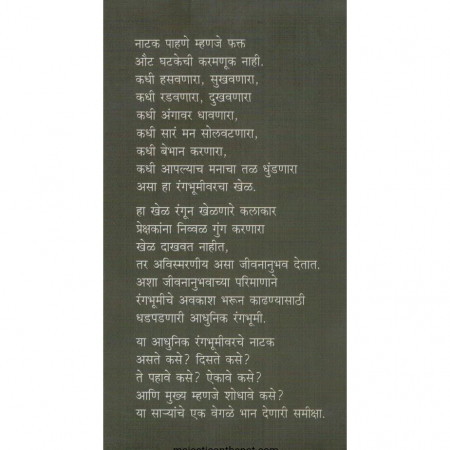 नाटक पाहणे म्हणजे फक्त
औट घटकेची करमणूक नाही.
कधी हसवणारा, सुखवणारा
कधी रडवणारा, दुखवणारा
कधी अंगावर धावणारा,
कधी सारं मन सोलवटणारा,
कधी बेभान करणारा,
कधी आपल्याच मनाचा तळ धुंडणारा
असा हा रंगभूमीवरचा खेळ.
हा खेळ रंगून खेळणारे कलाकार
प्रेक्षकांना निव्वळ गुंग करणारा
खेळ दाखवत नाहीत,
तर अविस्मरणीय असा जीवनानुभव देतात.
अशा जीवनानुभवाच्या परिमाणाने
रंगभूमीचे अवकाश भरून काढण्यासाठी
धडपडणारी आधुनिक रंगभूमी.
या आधुनिक रंगभूमीवरचे नाटक
असते कसे? दिसते कसे?
ते पहावे कसे? ऐकावे कसे?
आणि मुख्य म्हणजे शोधावे कसे?
या साऱ्यांचे एक वेगळे भान देणारी समीक्षा.